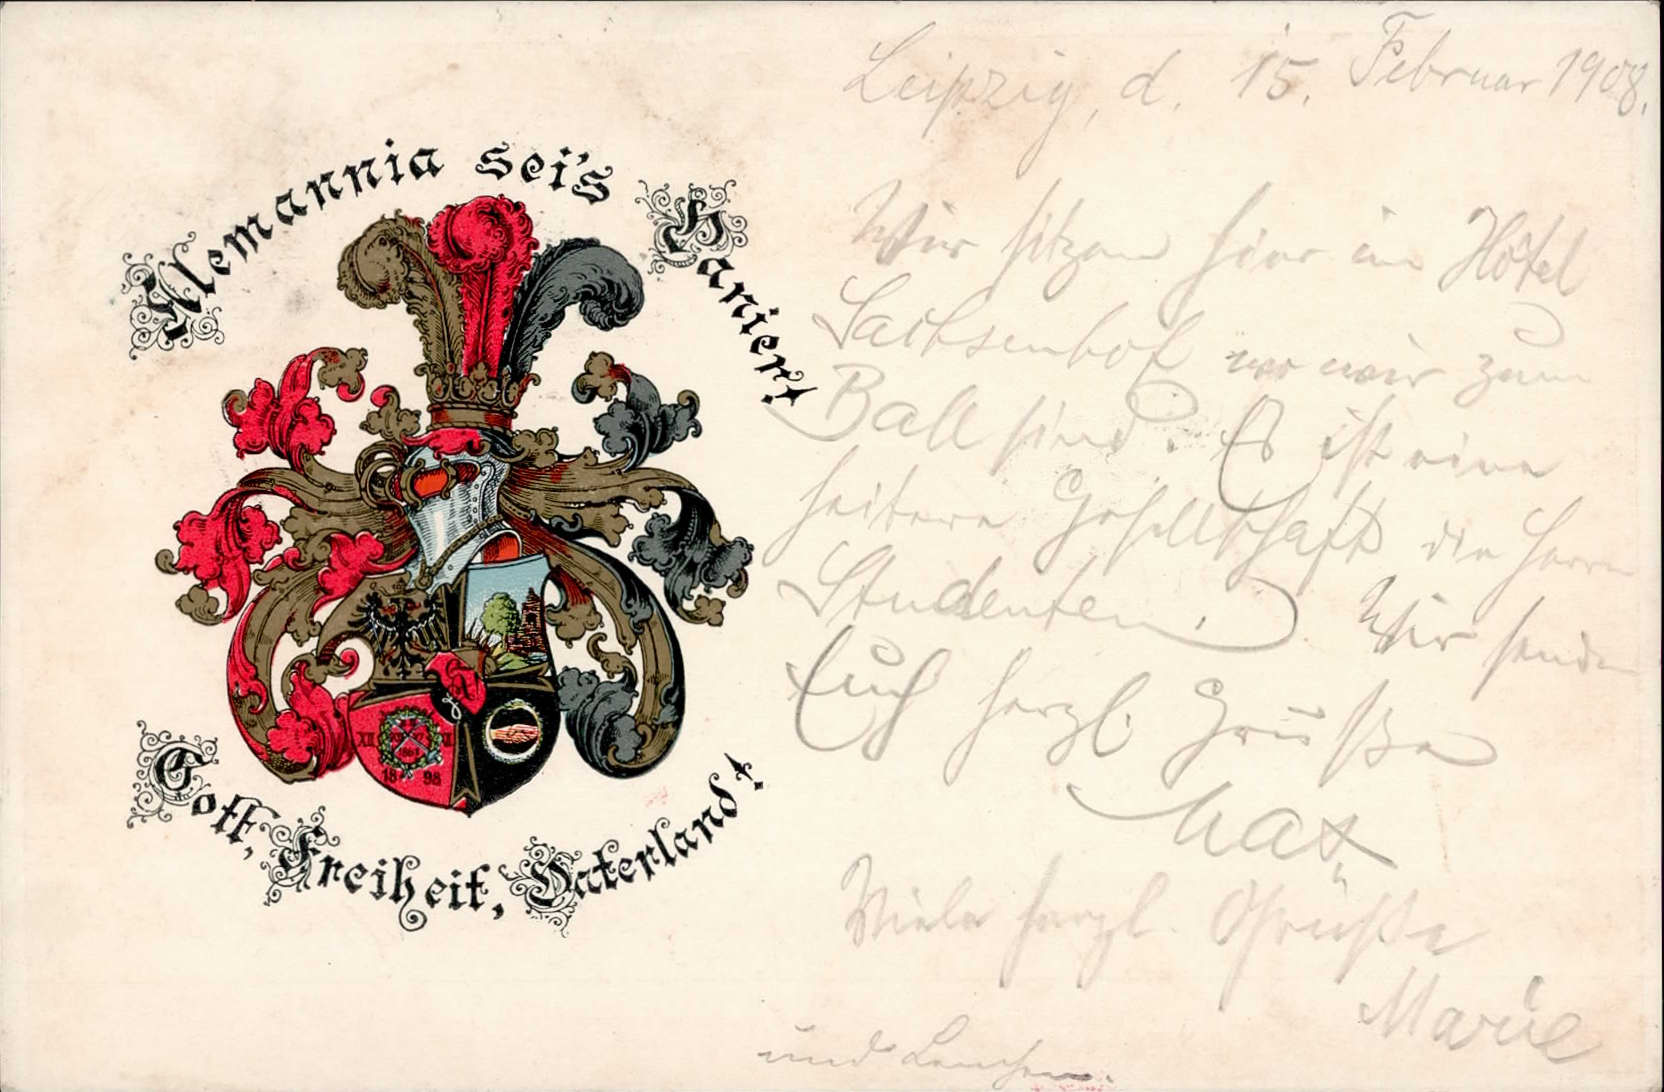 Alemannia sei's Panier!
Gott, Freiheit, Vaterland!
XII
18 98
Leipzig, d. 15. Februar 1908.
Wir sitzen hier im Hôtel
Sachsenhof wo wir zum
Ball sind. Es ist eine
heitere Gesellschaft die Herrn
Studenten. Wir senden
Euch herzl. Grüße
Max
Viele herzl. Grüße
Marie
und Lenchen.